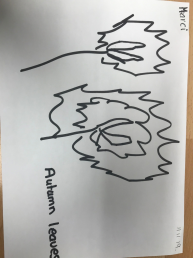 Marci
Autumn leaves